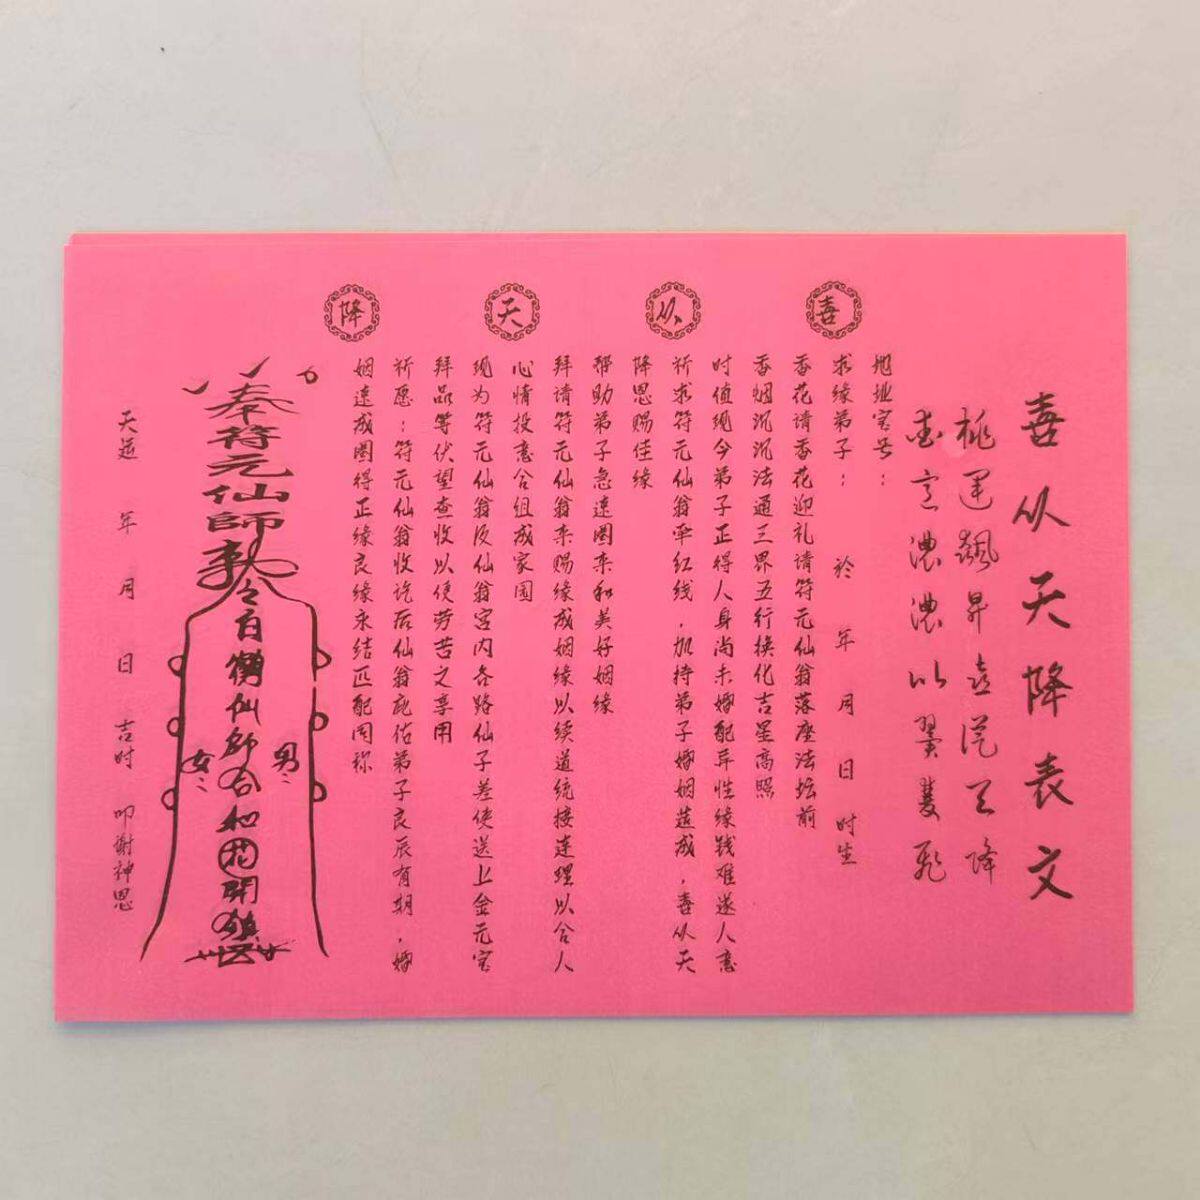 喜从天降表文
桃运飘昇喜从天降
意浓浓以翼双飞
喜从天降
地址宅号：
求缘弟子：　於　年　月　日　时生
香花请香花迎礼请符元仙翁落座法坛前
香烟沉沉法通三界五行换化吉星高照
时值现今弟子正得人身尚未婚配异性缘浅难遂人意
祈求符元仙翁牵红线，加持弟子婚姻造成，喜从天
降恩赐佳缘
帮助弟子急速圈来和美好姻缘
拜请符元仙翁来赐缘成姻缘以续道统接连理以合人
心情投意合组成家园
现为符元仙翁及仙翁宫内各路仙子差使送上金元宝
拜品等伏望查收以使劳苦之享用
祈愿：符元仙翁收讫后仙翁庇佑弟子良辰有期，婚
姻速成圈得正缘良缘永结匹配同称
奉符元仙師敕令
仙師合和花開鎮
男
女
天运　年　月　日　吉时　叩谢神恩